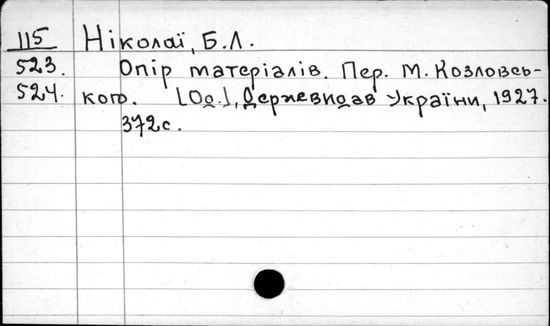 115 Ніколаї, Б.Л.
523. Опір матеріалів. Пер. М. Козловсь-
524. кого. [Од.], Державидав України, 1927.
372 с.